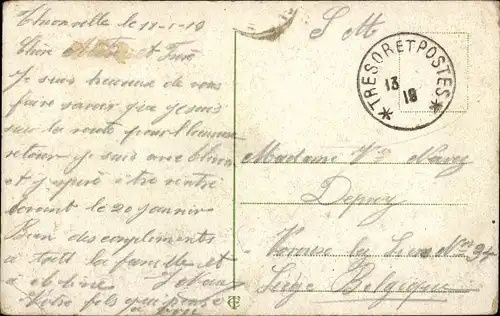 Thionville le 11-1-19
Chère et Frère
Je suis heureux de vous
faire savoir que je suis
sur la route pour l'heureuse
retour je suis avec
et j'espère être rentré
avant le 20 janvier
Bien des compliments
à toute la famille et
à
Votre fils qui pense
à vous
S M
* TRESOR ET POSTES *
13
18
Madame Vve Navez
Depuy
lez Liège
Liège Belgique